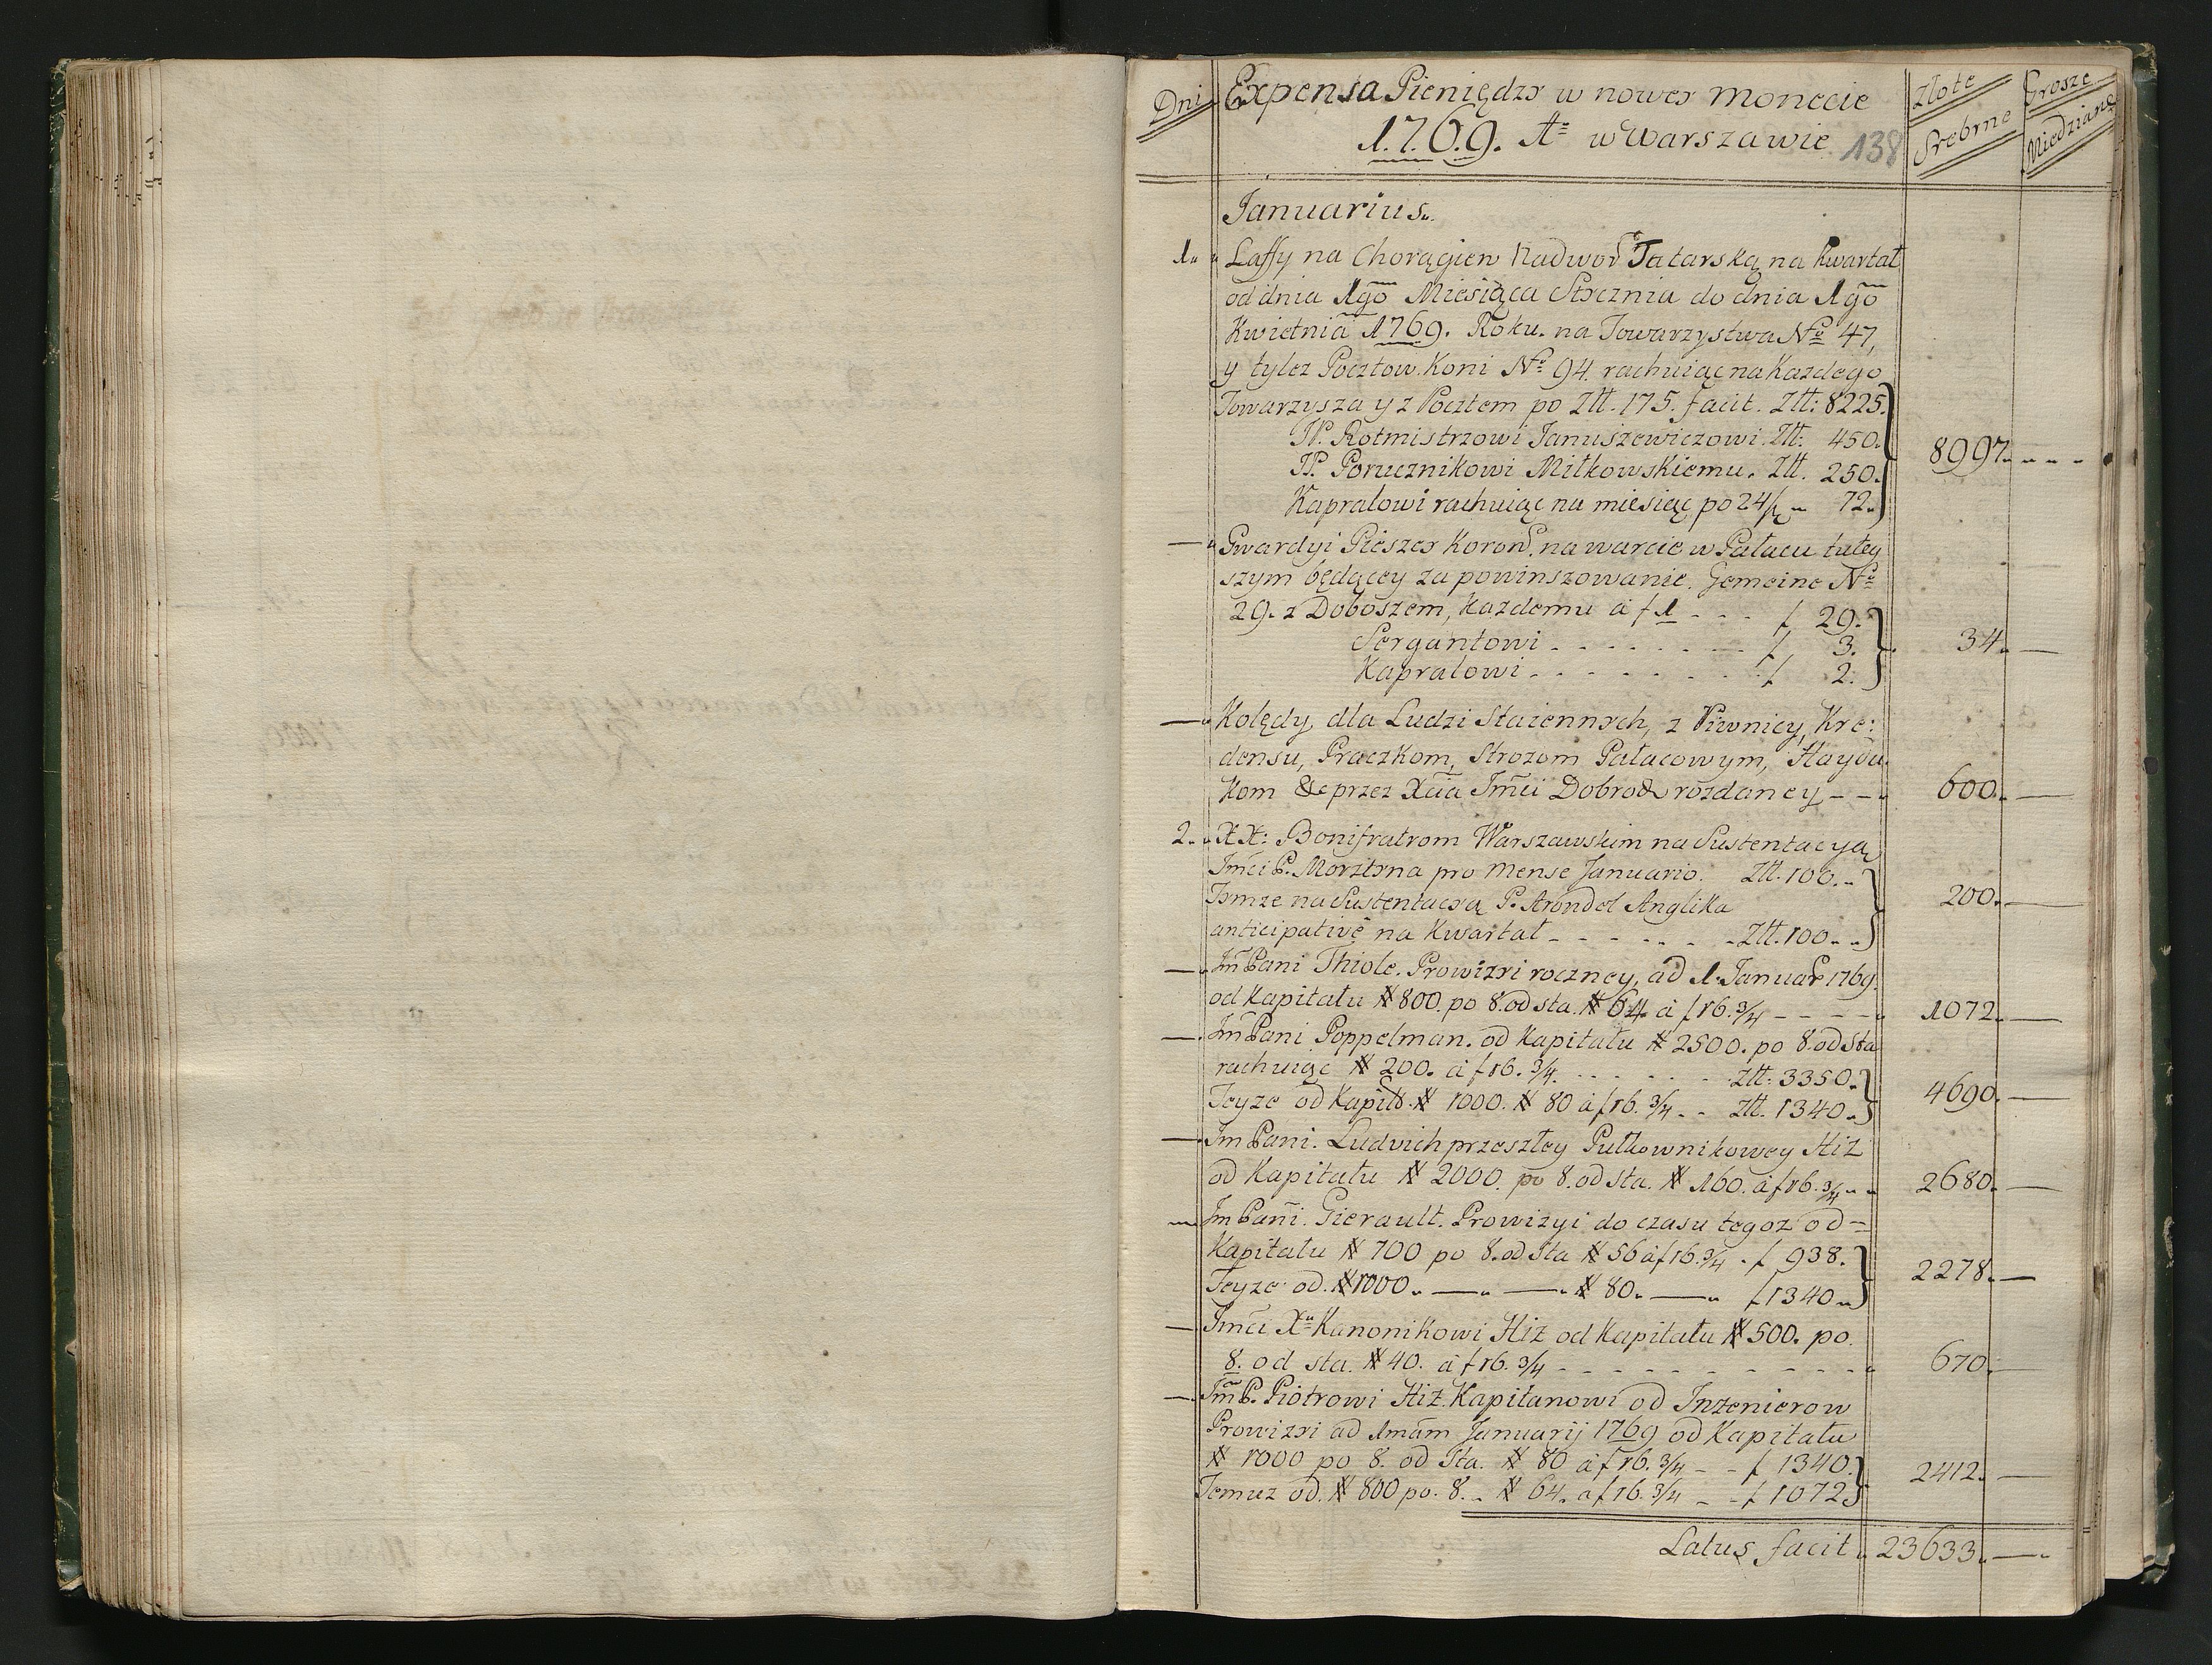 Dni Expensa Pieniędzy w nowey monecie Złote Srebrne Grosze Miedziane
1769. Ao w Warszawie 138
Januarius.
1. Laffy na Chorągiew Nadwor Tatarską na kwartał
od dnia 1go Miesiąca Stycznia do dnia 1go
Kwietnia 1769. Roku. na Towarzystwa No 47,
y tylez Pocztow. Koni No 94. rachuiąc na Kazdego
Towarzysza y z Pocztem po Ztt. 175. facit. Ztt: 8225.
JP. Rotmistrzowi Januszewiczowi. Ztt: 450.
JP. Porucznikowi Miłkowskiemu. Ztt. 250. 8997.
Kapralowi rachuiąc na miesiąc po 24/ 72.
— Gwardyi Pieszey Koron. na warcie w Pałacu tutey
szym będącey za powinszowanie. Gemeine No
29. z Doboszem, Kazdemu a f 1 - - - f 29.
Sergantowi - - - - - - f 3. 34. —
Kapralowi - - - - - - f 2.
— Kolędy dla Ludzi Staiennych, z Piwnicy, Kre:
densu, Praczkom, Strozom Pałacowym, Haydu
kom &c przez Xcia Jmci Dobrod rozdaney - - 600. —
2. XX: Bonifratrom Warszawskim na Sustentacyą
Jmci P. Morztyna pro Mense Januario. Ztt. 100.
Tymze na Sustentacyą P. Arondel Anglika 200. —
anticipativè na Kwartał - - - - - Ztt. 100.
— Jm Pani Thiole. Prowizyi roczney, ad 1. Januar 1769.
od Kapitału # 800. po 8. od sta. # 64 a f 16. 3/4 - - - - 1072. —
— Jm Pani Poppelman. od Kapitału # 2500. po 8. od sta
rachuiąc # 200. a f 16. 3/4. - - - - - Ztt: 3350.
Teyze od Kapit. # 1000. # 80 a f 16. 3/4 - - Ztt. 1340. 4690. —
— Jm Pani. Ludvich przeszłey Pułkownikowey Hiz
od Kapitału # 2000. po 8. od sta. # 160. a f 16. 3/4 2680. —
— Jm Pani. Gierault. Prowizyi do czasu tegoz od-
Kapitału # 700 po 8. od sta # 56 a f 16. 3/4 . f 938.
Teyze od. # 1000. — — # 80. — f 1340 2278. —
— Jmci Xu Kanonikowi Hiz od Kapitału # 500. po
8. od sta. # 40. a f 16. 3/4 - - - - - - - - - 670. —
— Jm P. Piotrowi Hiz. Kapitanowi od Inzenierow
Prowizyi ad 1mam Januarij 1769 od Kapitału
# 1000 po 8. od Sta. # 80 a f 16. 3/4 - - f 1340.
Temuz od. # 800 po. 8. - # 64. a f 16. 3/4 - - f 1072 2412. —
Latus facit 23633. —